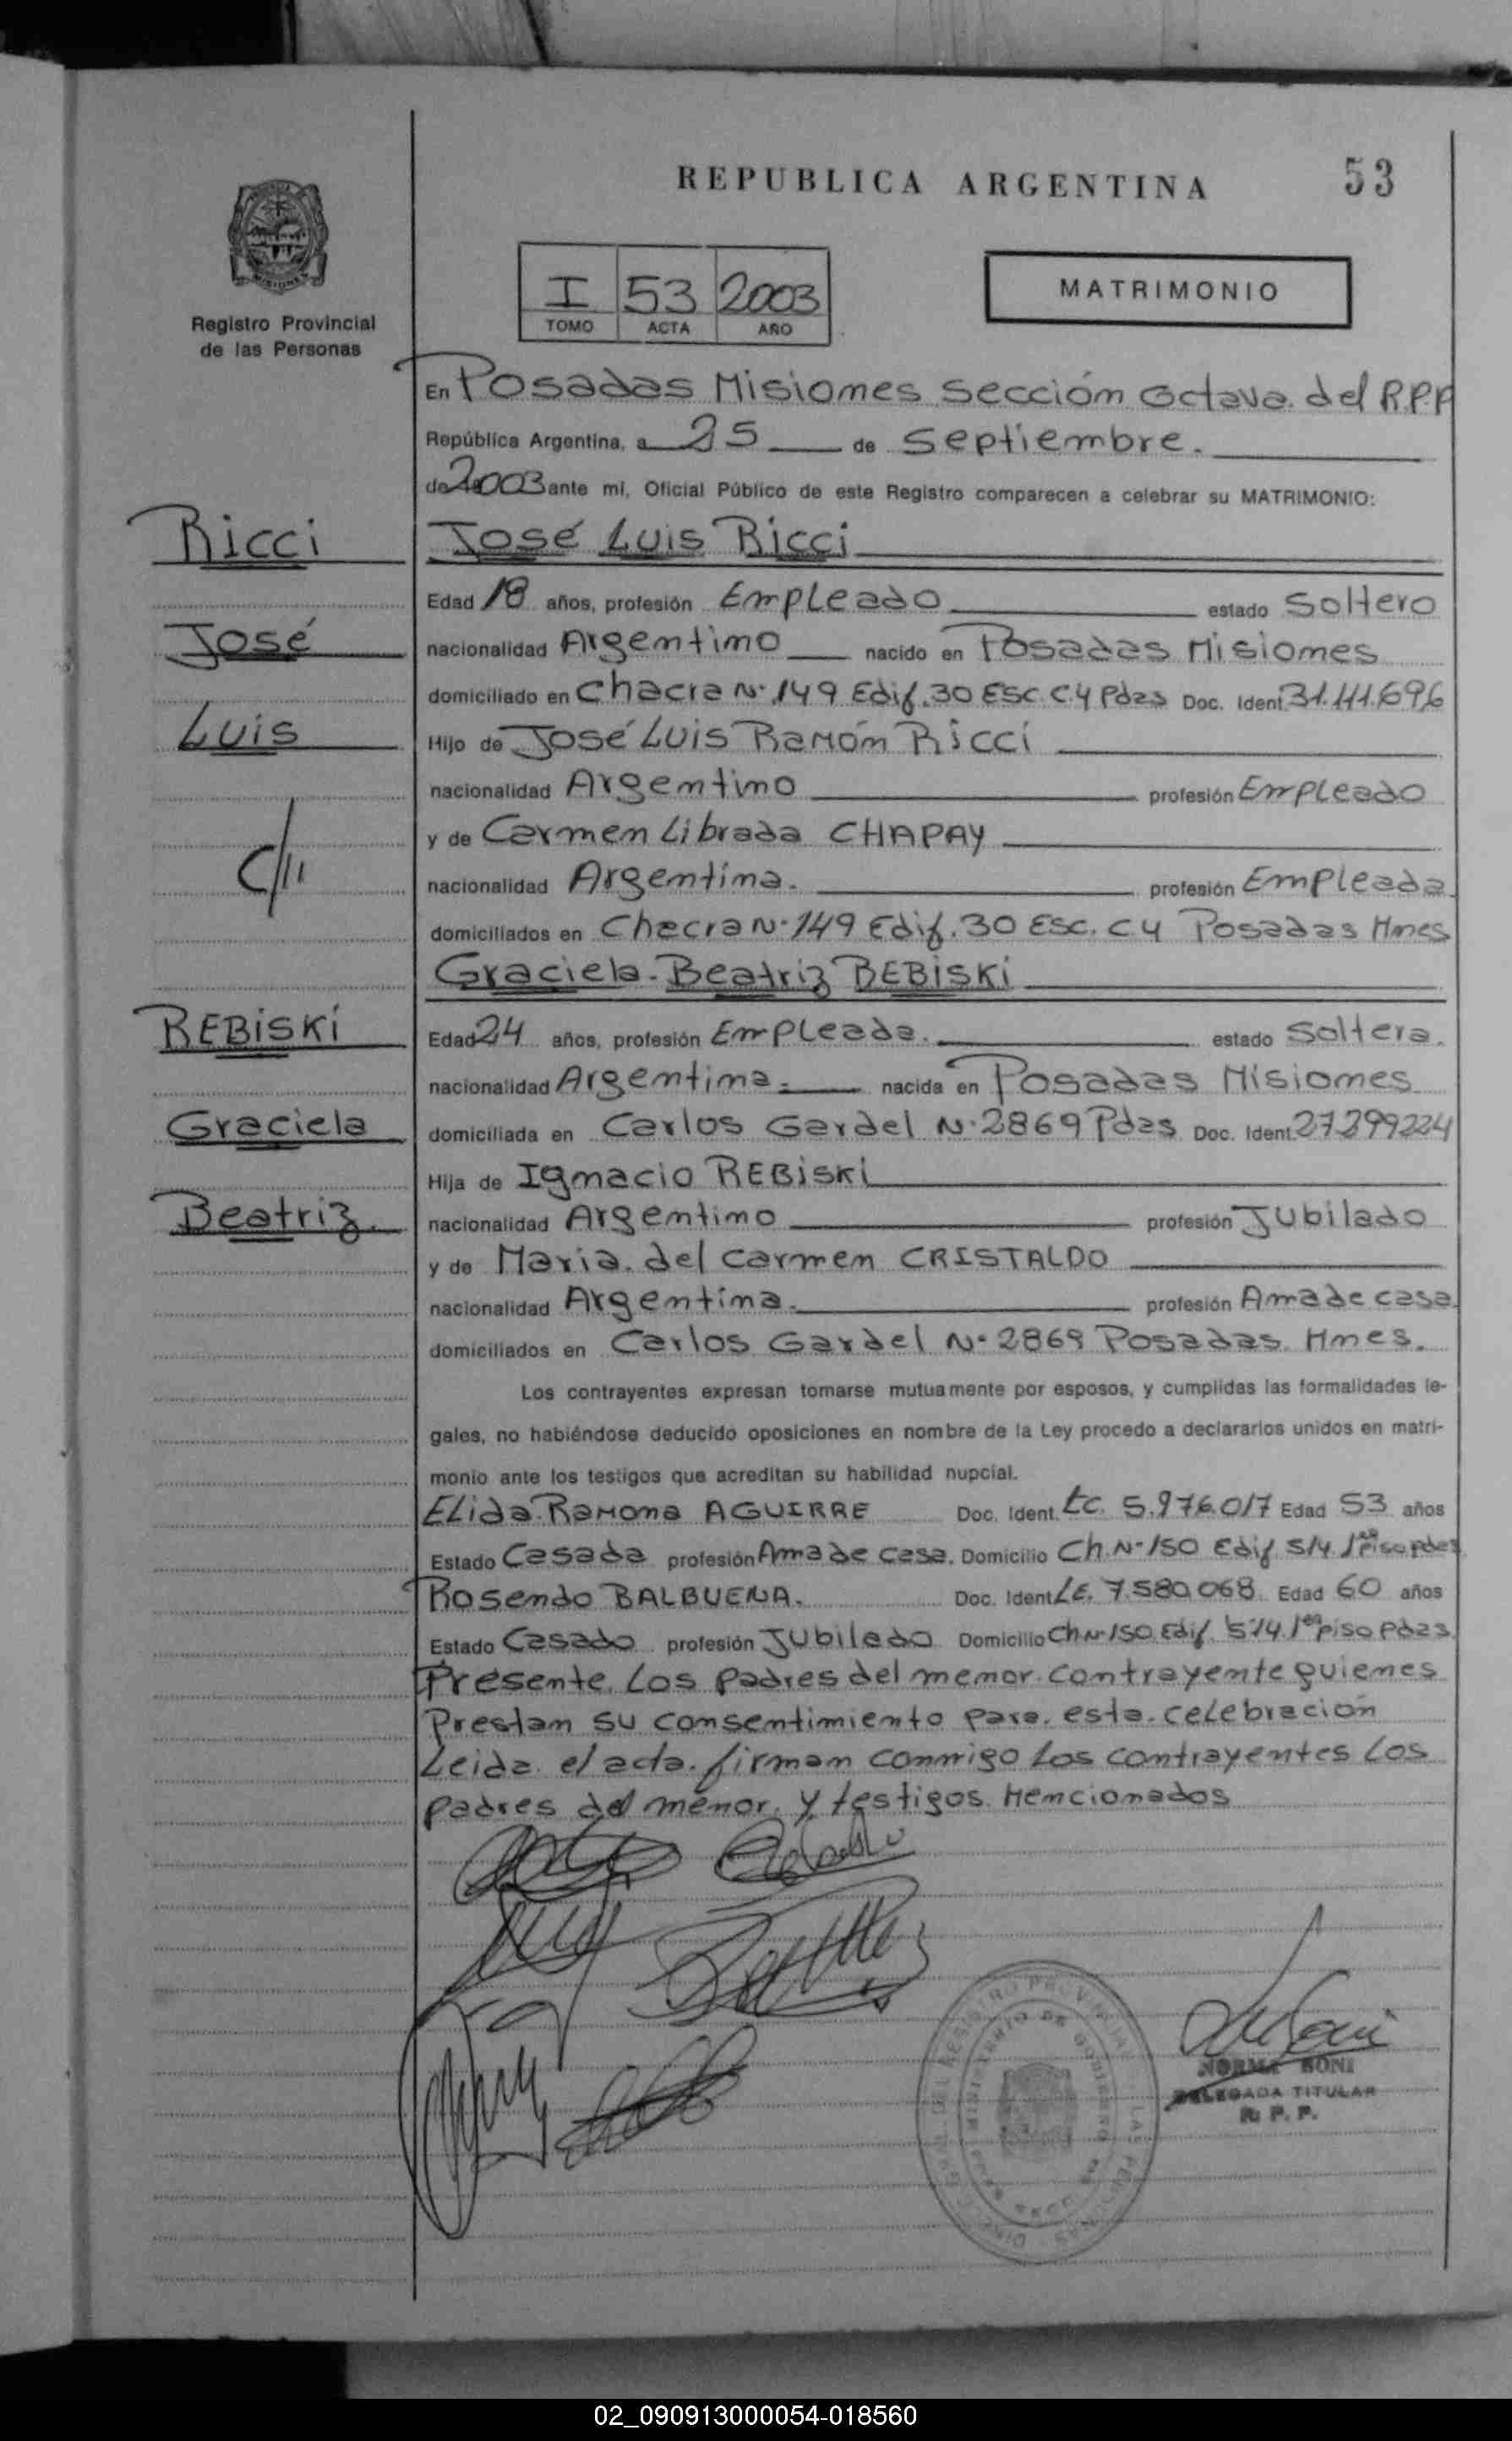 REPUBLICA ARGENTINA
53
MISIONES
Registro Provincial
de las Personas
I 53 2003
TOMO ACTA AÑO
MATRIMONIO
En Posadas Misiones Sección Octava del R.P.P
República Argentina, a 25 de Septiembre.
de 2003 ante mí, Oficial Público de este Registro comparecen a celebrar su MATRIMONIO:
Ricci
José Luis Ricci
Edad 18 años, profesión Empleado estado Soltero
José
nacionalidad Argentino nacido en Posadas Misiones
domiciliado en Chacra N° 149 Edif. 30 Esc. C.4 Pdas Doc. Ident. 31.111.696
Luis
Hijo de José Luis Ramón Ricci
nacionalidad Argentino profesión Empleado
y de Carmen Librada CHAPAY
C/
nacionalidad Argentina. profesión Empleada
domiciliados en Chacra N° 149 Edif. 30 Esc. C4 Posadas Mnes
Graciela Beatriz REBISKI
REBISKI
Edad 24 años, profesión Empleada. estado Soltera.
nacionalidad Argentina. nacida en Posadas Misiones
Graciela
domiciliada en Carlos Gardel N° 2869 Pdas Doc. Ident. 27299224
Hija de Ignacio REBISKI
Beatriz.
nacionalidad Argentino profesión Jubilado
y de Maria del Carmen CRISTALDO
nacionalidad Argentina. profesión Ama de casa.
domiciliados en Carlos Gardel N° 2869 Posadas Mnes.
Los contrayentes expresan tomarse mutuamente por esposos, y cumplidas las formalidades le-
gales, no habiéndose deducido oposiciones en nombre de la Ley procedo a declararlos unidos en matri-
monio ante los testigos que acreditan su habilidad nupcial.
Elida Ramona AGUIRRE Doc. Ident. LC. 5.976.017 Edad 53 años
Estado Casada profesión Ama de casa. Domicilio Ch. N° 150 Edif 514 1er piso pdas
Rosendo BALBUENA. Doc. Ident. LE. 7.580.068 Edad 60 años
Estado Casado profesión Jubilado Domicilio Ch N° 150 Edif. 514 1er piso Pdas.
Presente Los padres del menor contrayente quienes
Prestan su consentimiento para esta celebración
Leida el acta firman conmigo los contrayentes los
padres del menor y testigos Mencionados
NORMA BONI
DELEGADA TITULAR
R. P. P.
02_090913000054-018560